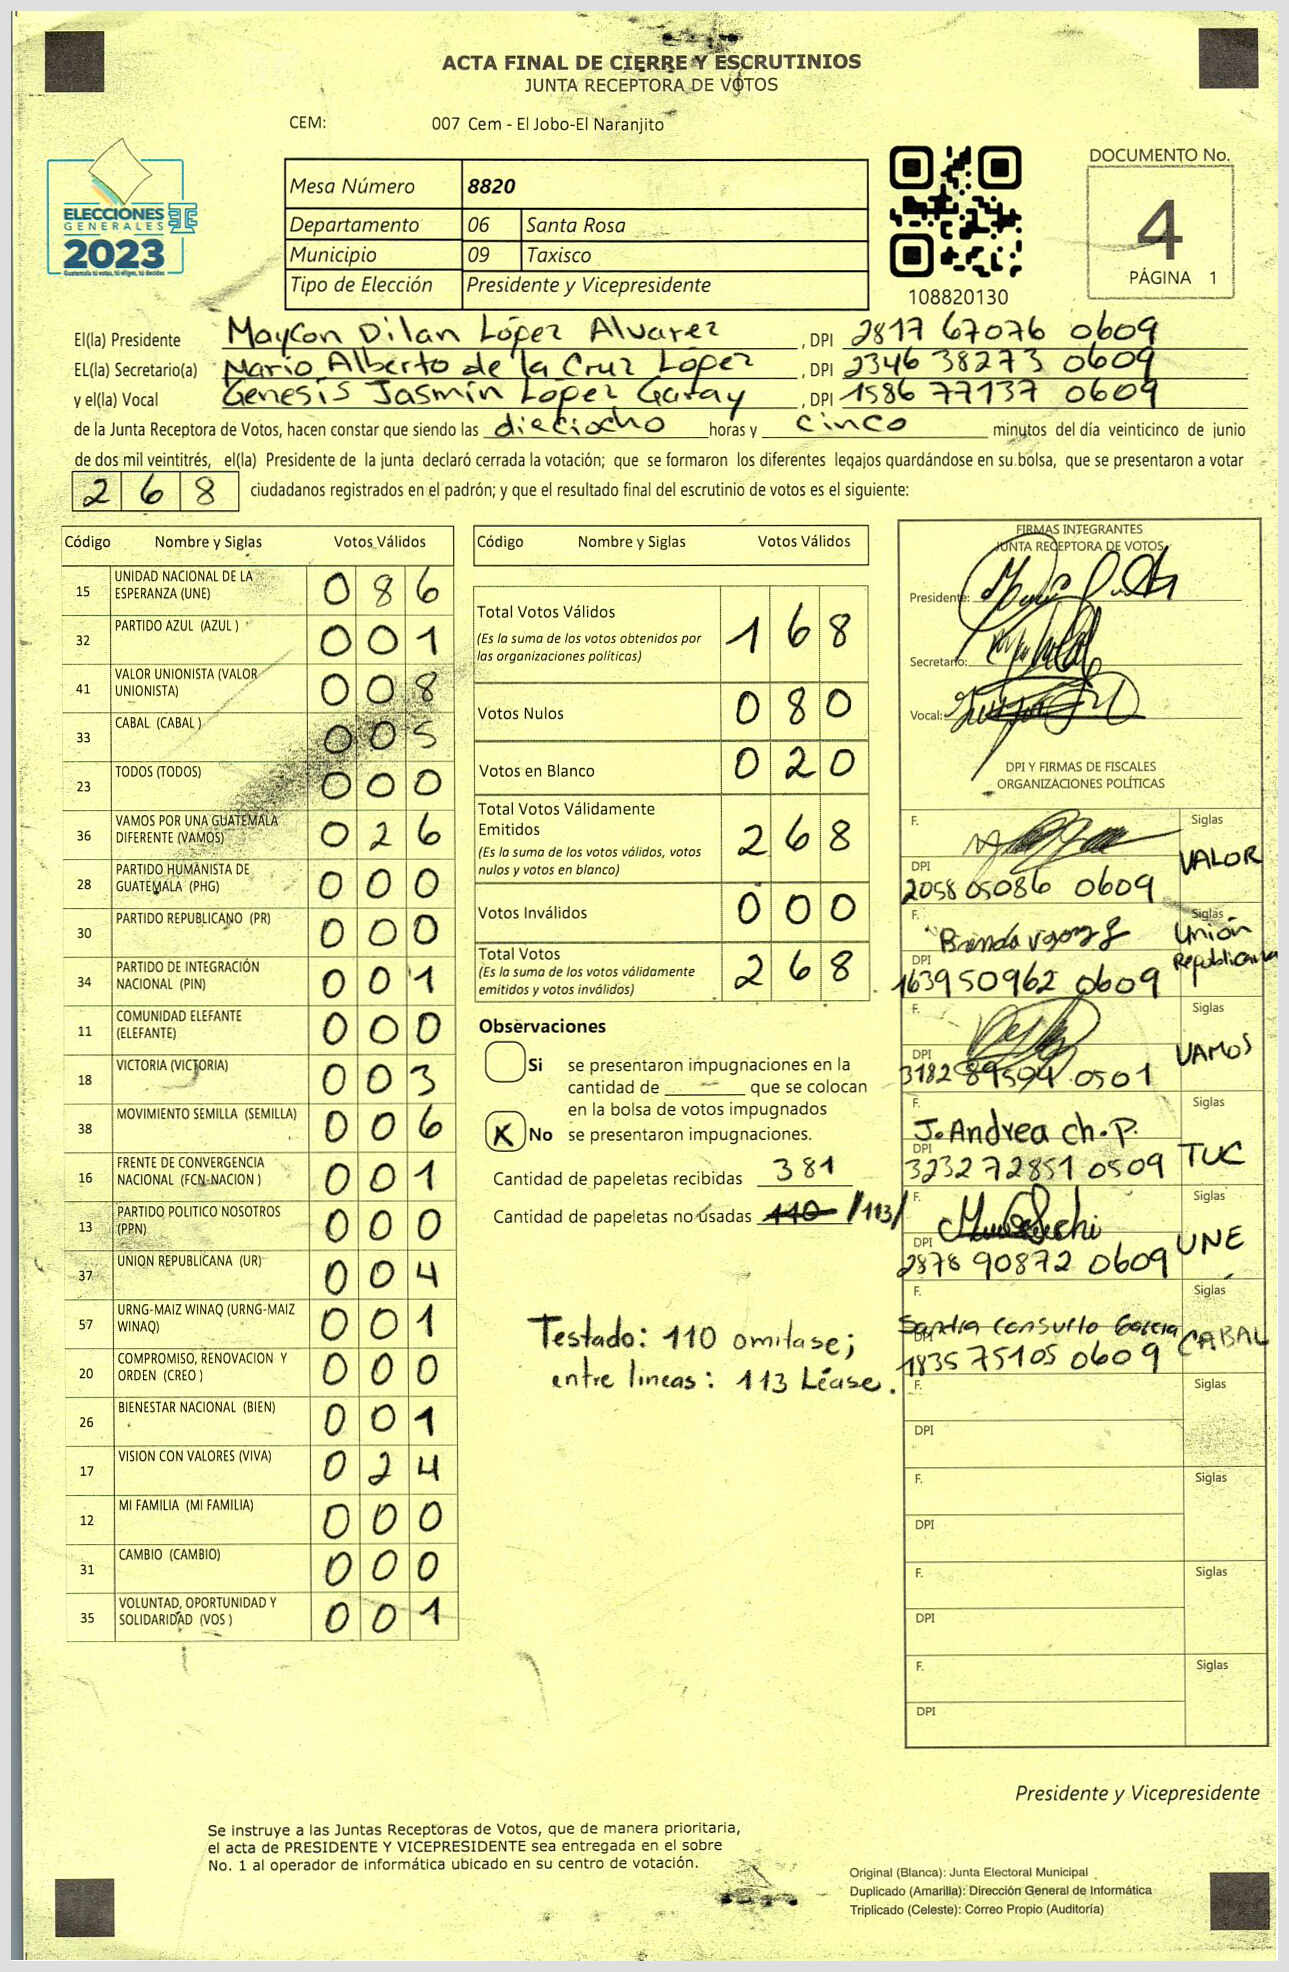 ACTA FINAL DE CIERRE Y ESCRUTINIOS
JUNTA RECEPTORA DE VOTOS
CEM: 007 Cem - El Jobo-El Naranjito
ELECCIONES
GENERALES
2023
Guatemala tú votas, tú eliges, tú decides
Mesa Número 8820
Departamento 06 Santa Rosa
Municipio 09 Taxisco
Tipo de Elección Presidente y Vicepresidente
108820130
DOCUMENTO No.
4
PÁGINA 1
El(la) Presidente Maycon Dilan López Alvarez , DPI 2817 67076 0609
EL(la) Secretario(a) Mario Alberto de la Cruz Lopez , DPI 2346 38273 0609
y el(la) Vocal Genesis Jasmín López Garay , DPI 1586 77137 0609
de la Junta Receptora de Votos, hacen constar que siendo las dieciocho horas y cinco minutos del día veinticinco de junio
de dos mil veintitrés, el(la) Presidente de la junta declaró cerrada la votación; que se formaron los diferentes legajos quardándose en su bolsa, que se presentaron a votar
268 ciudadanos registrados en el padrón; y que el resultado final del escrutinio de votos es el siguiente:
Código Nombre y Siglas Votos Válidos
15 UNIDAD NACIONAL DE LA ESPERANZA (UNE) 086
32 PARTIDO AZUL (AZUL ) 001
41 VALOR UNIONISTA (VALOR UNIONISTA) 008
33 CABAL (CABAL ) 005
23 TODOS (TODOS) 000
36 VAMOS POR UNA GUATEMALA DIFERENTE (VAMOS) 026
28 PARTIDO HUMANISTA DE GUATEMALA (PHG) 000
30 PARTIDO REPUBLICANO (PR) 000
34 PARTIDO DE INTEGRACIÓN NACIONAL (PIN) 001
11 COMUNIDAD ELEFANTE (ELEFANTE) 000
18 VICTORIA (VICTORIA) 003
38 MOVIMIENTO SEMILLA (SEMILLA) 006
16 FRENTE DE CONVERGENCIA NACIONAL (FCN-NACION ) 001
13 PARTIDO POLITICO NOSOTROS (PPN) 000
37 UNION REPUBLICANA (UR) 004
57 URNG-MAIZ WINAQ (URNG-MAIZ WINAQ) 001
20 COMPROMISO, RENOVACION Y ORDEN (CREO ) 000
26 BIENESTAR NACIONAL (BIEN) 001
17 VISION CON VALORES (VIVA) 024
12 MI FAMILIA (MI FAMILIA) 000
31 CAMBIO (CAMBIO) 000
35 VOLUNTAD, OPORTUNIDAD Y SOLIDARIDAD (VOS ) 001
Código Nombre y Siglas Votos Válidos
Total Votos Válidos 168
(Es la suma de los votos obtenidos por
las organizaciones politicas)
Votos Nulos 080
Votos en Blanco 020
Total Votos Válidamente
Emitidos 268
(Es la suma de los votos válidos, votos
nulos y votos en blanco)
Votos Inválidos 000
Total Votos 268
(Es la suma de los votos válidamente
emitidos y votos inválidos)
Observaciones
Si se presentaron impugnaciones en la
cantidad de — que se colocan
en la bolsa de votos impugnados
X No se presentaron impugnaciones.
Cantidad de papeletas recibidas 381
Cantidad de papeletas no usadas 110 /113/
Testado: 110 omitase;
entre lineas: 113 Léase.
FIRMAS INTEGRANTES
JUNTA RECEPTORA DE VOTOS
Presidente:
Secretario:
Vocal:
DPI Y FIRMAS DE FISCALES
ORGANIZACIONES POLÍTICAS
F. Siglas VALOR
DPI 2058 05086 0609
F. Siglas Unión Republicana
DPI 1639 50962 0609
F. Siglas VAMOS
DPI 3182 89594 0501
F. J. Andrea ch. P. Siglas TUC
DPI 3232 72851 0509
F. Siglas UNE
DPI 2878 90872 0609
F. Sandra Consuelo Garcia Siglas CABAL
DPI 1835 75105 0609
F. Siglas
DPI
F. Siglas
DPI
F. Siglas
DPI
F. Siglas
DPI
Presidente y Vicepresidente
Se instruye a las Juntas Receptoras de Votos, que de manera prioritaria,
el acta de PRESIDENTE Y VICEPRESIDENTE sea entregada en el sobre
No. 1 al operador de informática ubicado en su centro de votación.
Original (Blanca): Junta Electoral Municipal
Duplicado (Amarilla): Dirección General de Informática
Triplicado (Celeste): Correo Propio (Auditoría)